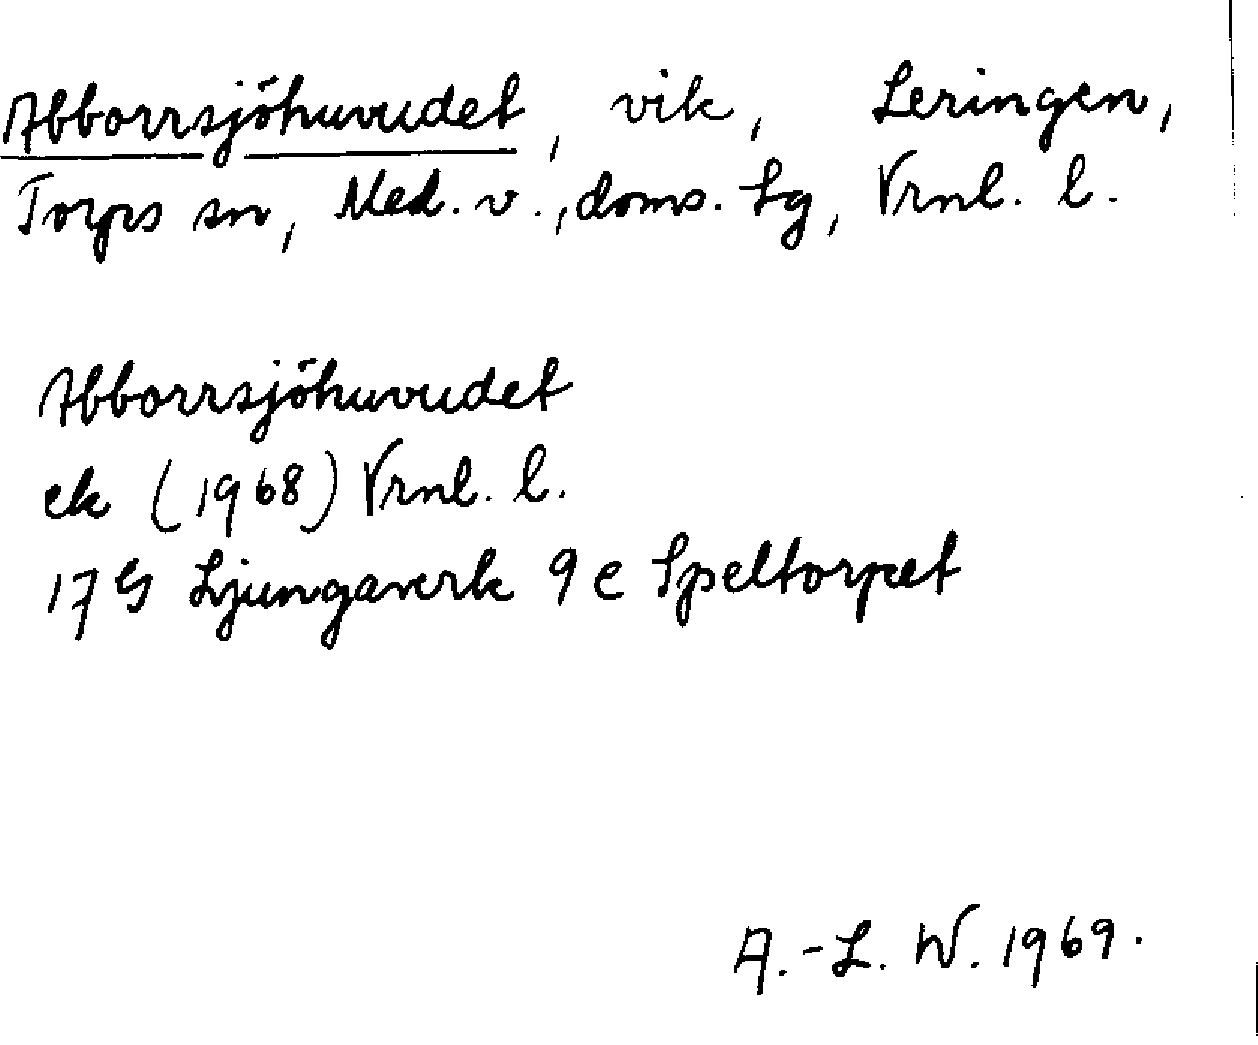 Abborrsjöhuvudet, vik, Leringen,
Torps sn, Med. v., doms. Lg, Vrnl. l.
Abborrsjöhuvudet
ek (1968) Vrnl. l.
17 G Ljungaverk 9 e Speltorpet
A.-L. W. 1969.